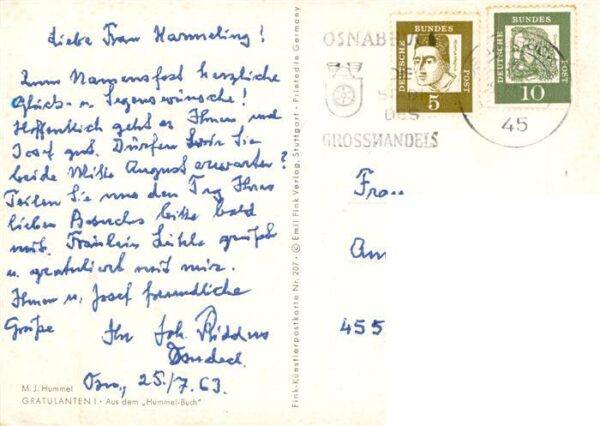 Liebe Frau Harmeling!
Zum Namensfest herzliche
Glück- u. Segenswünsche!
Hoffentlich geht es Ihnen und
Josef gut. Dürfen wir Sie
beide Mitte August erwarten?
Teilen Sie uns den Tag Ihres
lieben Besuches bitte bald
mit. Fräulein grüßt
u. gratuliert mit mir.
Ihnen u. Josef freundliche
Grüße Ihr Joh.
Osn, 25./7.63.
M. J. Hummel
GRATULANTEN I · Aus dem „Hummel-Buch"
Fink-Künstlerpostkarte Nr. 207 · © Emil Fink Verlag, Stuttgart · Printed in Germany
OSNABR
DIE
DES
GROSSHANDELS
DEUTSCHE BUNDESPOST
5
DEUTSCHE BUNDESPOST
10
45
Frau
An
455